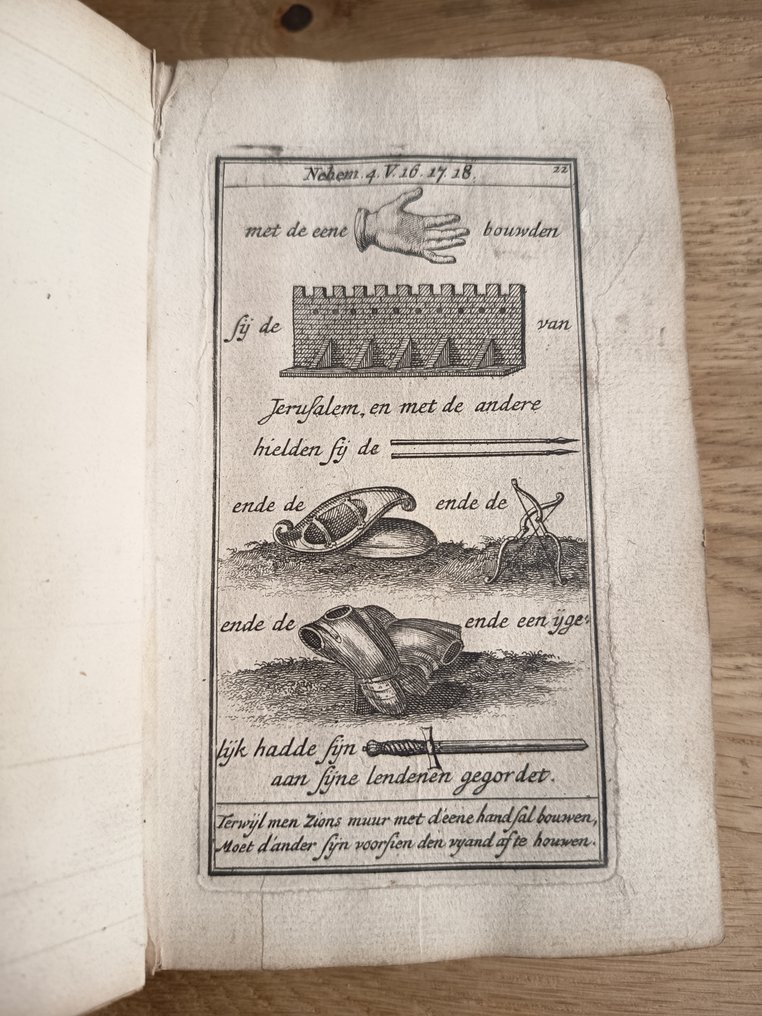 Nehem. 4. V. 16. 17. 18.
22
met de eene bouwden
sij de van
Jerusalem, en met de andere
hielden sij de
ende de ende de
ende de ende een ijge:
lijk hadde sijn
aan sijne lendenen gegordet.
Terwijl men Zions muur met d'eene hand sal bouwen,
Moet d'ander sijn voorsien den vyand af te houwen.